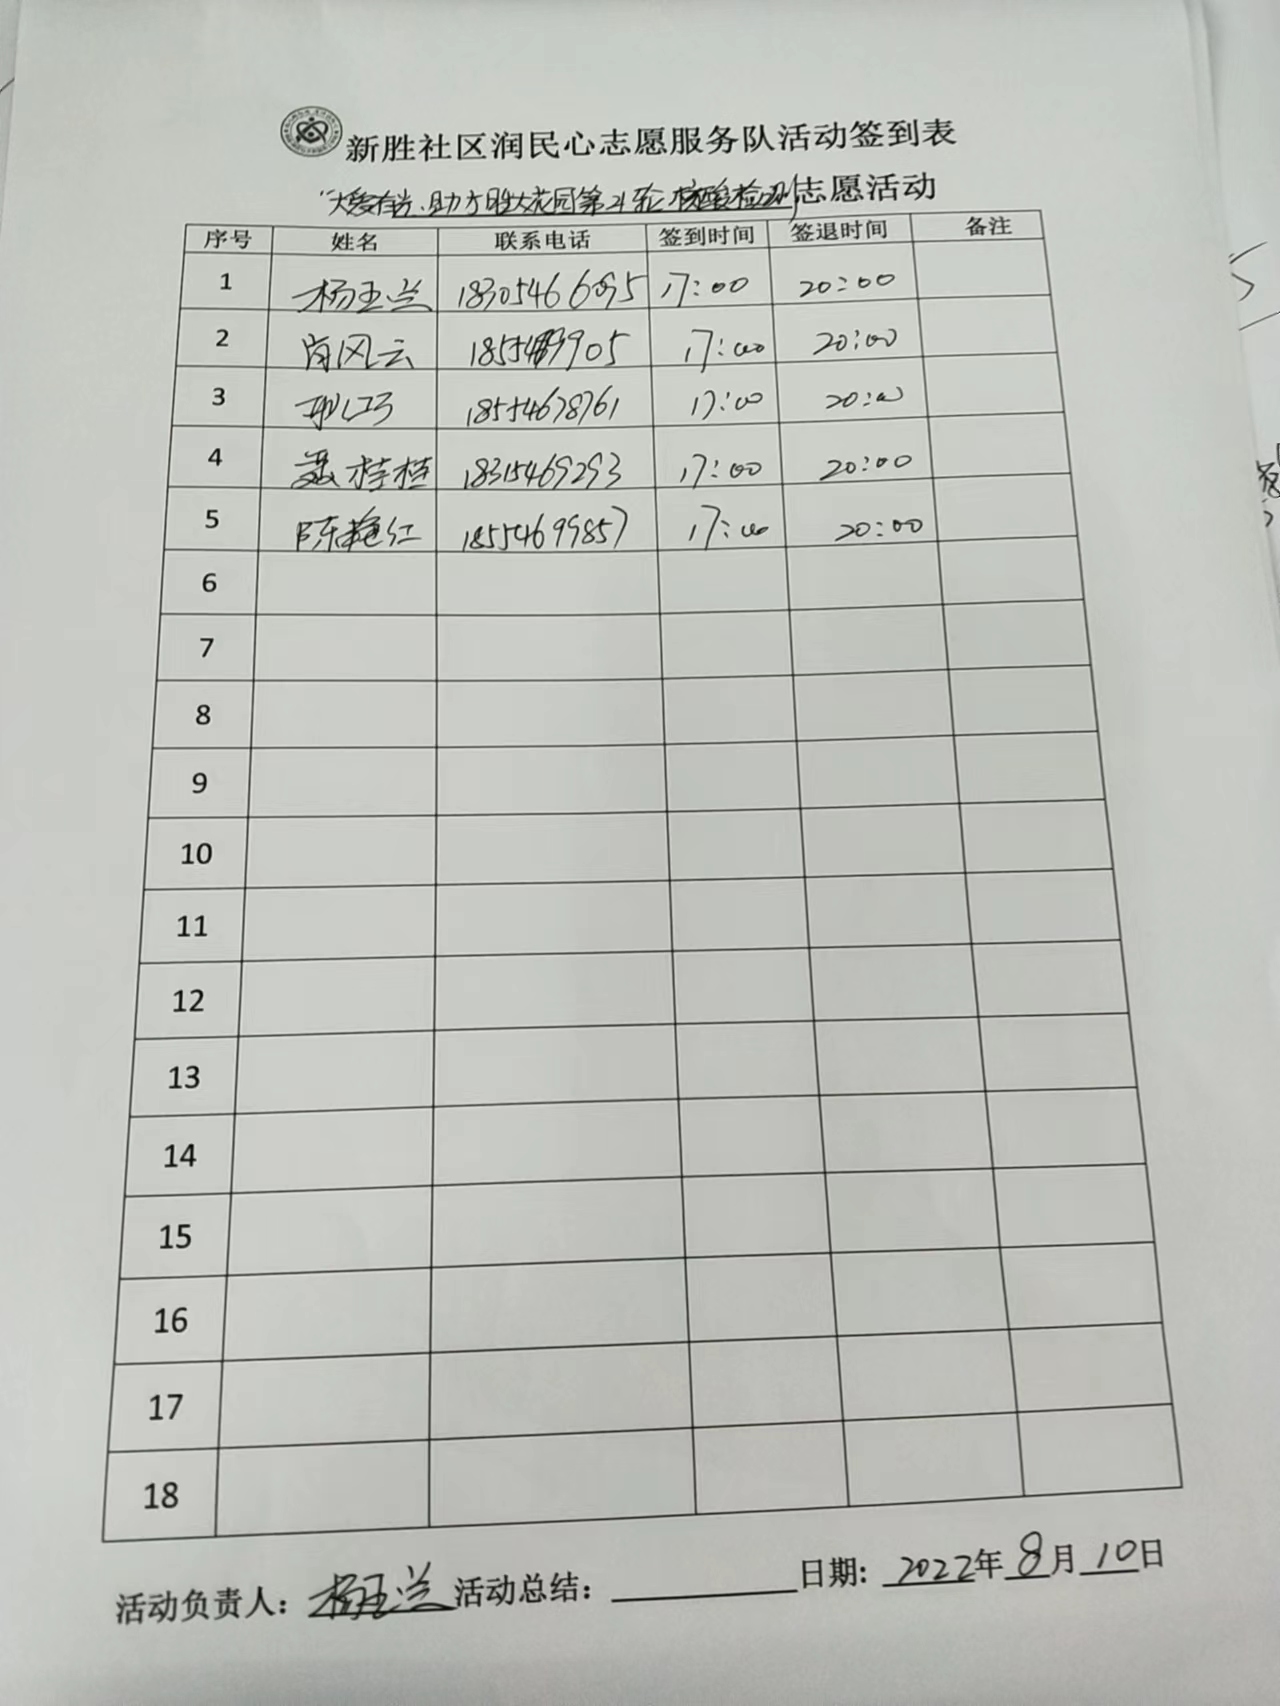 新胜社区润民心志愿服务队活动签到表
"大爱有光.助力胜大花园第21轮核酸检测"志愿活动
序号 姓名 联系电话 签到时间 签退时间 备注
1 杨玉兰 18305466095 17:00 20:00
2 风云 17:00 20:00
3 18554678761 17:00 20:00
4 聂桂桂 18315469293 17:00 20:00
5 陈艳红 18554699857 17:00 20:00
6
7
8
9
10
11
12
13
14
15
16
17
18
活动负责人: 杨玉兰 活动总结: 日期: 2022年8月10日